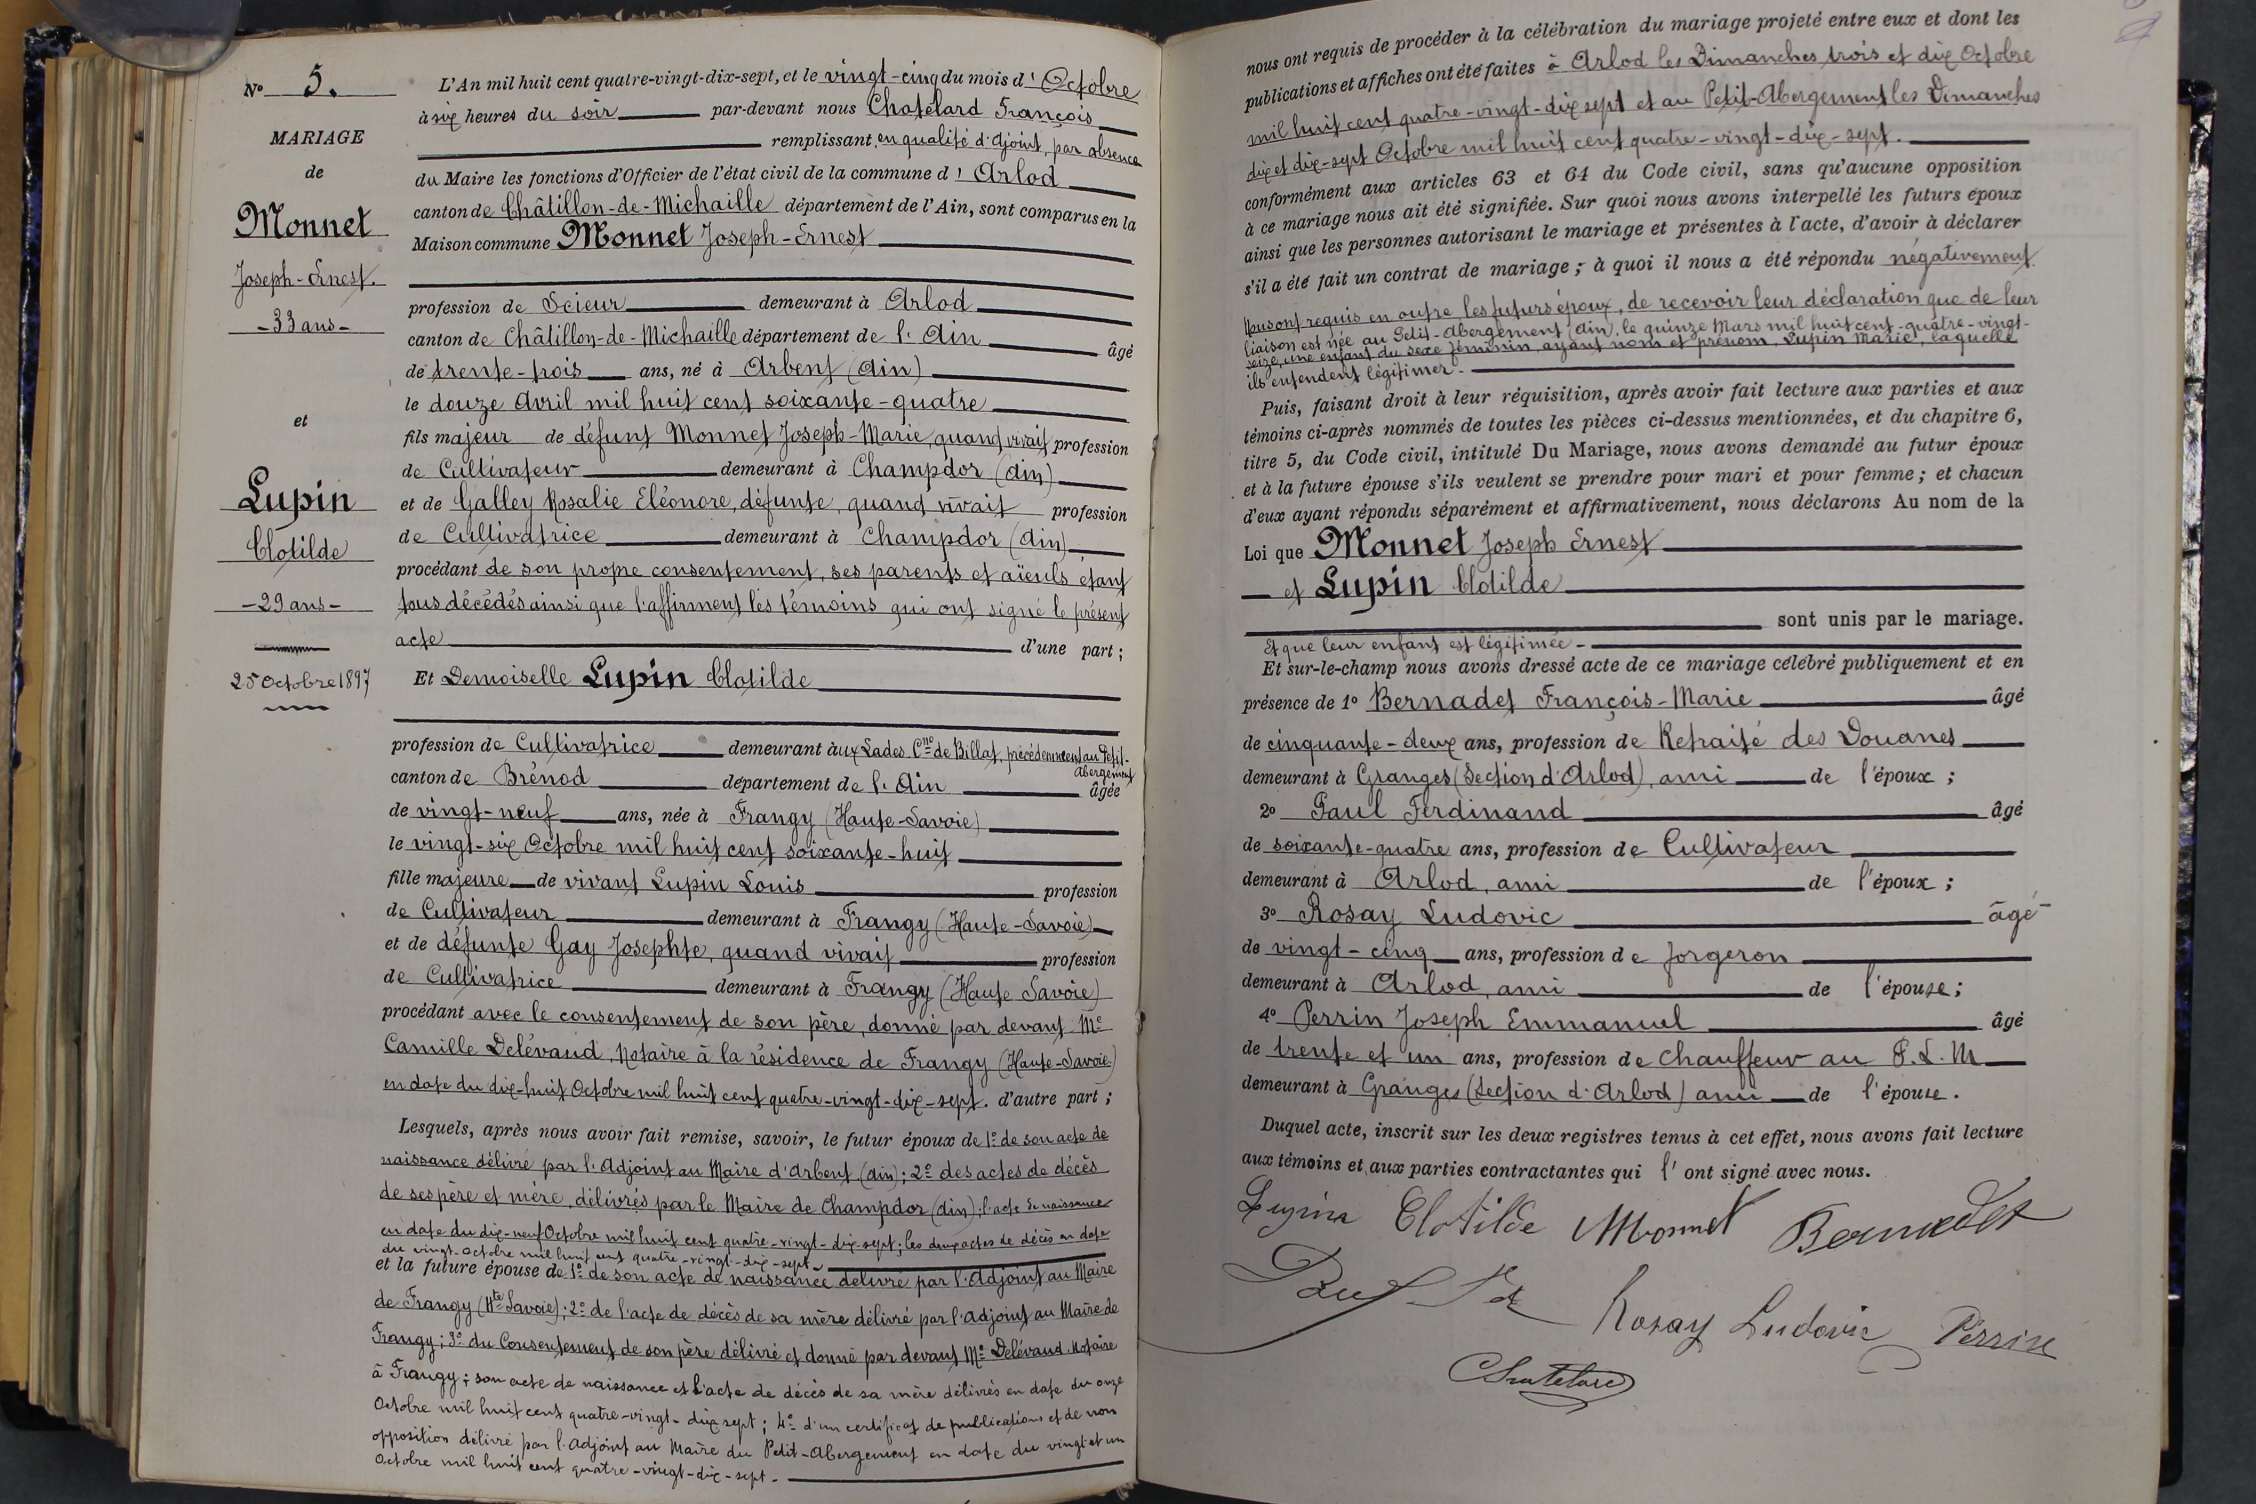 N° 5.
MARIAGE
de
Monnet
Joseph-Ernest.
-33 ans-
et
Lupin
Clotilde
-29 ans-
25 Octobre 1897
L'An mil huit cent quatre-vingt-dix-sept, et le vingt-cinq du mois d'Octobre
à six heures du soir par-devant nous Chatelard François
remplissant, en qualité d'adjoint, par absence
du Maire les fonctions d'Officier de l'état civil de la commune d'Arlod
canton de Châtillon-de-Michaille département de l'Ain, sont comparus en la
Maison commune Monnet Joseph-Ernest
profession de Scieur demeurant à Arlod
canton de Châtillon-de-Michaille département de l'Ain âgé
de trente-trois ans, né à Arbent (Ain)
le douze Avril mil huit cent soixante-quatre
fils majeur de défunt Monnet Joseph-Marie, quand vivait profession
de Cultivateur demeurant à Champdor (Ain)
et de Galley Rosalie Eléonore, défunte, quand vivait profession
de Cultivatrice demeurant à Champdor (Ain)
procédant de son propre consentement, ses parents et aïeuls étant
tous décédés ainsi que l'affirment les témoins qui ont signé le présent
acte d'une part ;
Et Demoiselle Lupin Clotilde
profession de Cultivatrice demeurant àux Lades Cne de Billat, précédemment au Petit-
Abergement
canton de Brénod département de l'Ain âgée
de vingt-neuf ans, née à Frangy (Haute-Savoie)
le vingt-six Octobre mil huit cent soixante-huit
fille majeure de vivant Lupin Louis profession
de Cultivateur demeurant à Frangy (Haute-Savoie)
et de défunte Gay Josephte, quand vivait profession
de Cultivatrice demeurant à Frangy (Haute Savoie)
procédant avec le consentement de son père, donné par devant Me
Camille Delévaud, Notaire à la résidence de Frangy (Haute-Savoie)
en date du dix-huit Octobre mil huit cent quatre-vingt-dix-sept. d'autre part ;
Lesquels, après nous avoir fait remise, savoir, le futur époux de 1° de son acte de
naissance délivré par l'Adjoint au Maire d'Arbent (Ain) ; 2° des actes de décès
de ses père et mère, délivrés par le Maire de Champdor (Ain) ; l'acte de naissance
en date du dix-neuf Octobre mil huit cent quatre-vingt-dix-sept ; les deux actes de décès en date
du vingt-Octobre mil huit cent quatre-vingt-dix-sept-
et la future épouse de 1° de son acte de naissance délivré par l'Adjoint au Maire
de Frangy (Hte Savoie) ; 2° de l'acte de décès de sa mère délivré par l'adjoint au Maire de
Frangy ; 3° du Consentement de son père délivré et donné par devant Me Delévaud Notaire
à Frangy ; son acte de naissance et l'acte de décès de sa mère délivrés en date du onze
Octobre mil huit cent quatre-vingt-dix sept ; 4° d'un certificat de publications et de non
opposition délivré par l'Adjoint au Maire du Petit-Abergement en date du vingt et un
Octobre mil huit cent quatre-vingt-dix-sept-
nous ont requis de procéder à la célébration du mariage projeté entre eux et dont les
publications et affiches ont été faites à Arlod les Dimanches trois et dix Octobre
mil huit cent quatre-vingt-dix sept et au Petit-Abergement les Dimanches
dix et dix-sept Octobre mil huit cent quatre-vingt-dix-sept.
conformément aux articles 63 et 64 du Code civil, sans qu'aucune opposition
à ce mariage nous ait été signifiée. Sur quoi nous avons interpellé les futurs époux
ainsi que les personnes autorisant le mariage et présentes à l'acte, d'avoir à déclarer
s'il a été fait un contrat de mariage ; à quoi il nous a été répondu négativement.
Nous ont requis en outre, les futurs époux, de recevoir leur déclaration que de leur
liaison est née au Petit-Abergement (Ain), le quinze Mars mil huit cent-quatre-vingt-
seize, une enfant du sexe féminin, ayant nom et prénom, Lupin Marie, laquelle
ils entendent légitimer-
Puis, faisant droit à leur réquisition, après avoir fait lecture aux parties et aux
témoins ci-après nommés de toutes les pièces ci-dessus mentionnées, et du chapitre 6,
titre 5, du Code civil, intitulé Du Mariage, nous avons demandé au futur époux
et à la future épouse s'ils veulent se prendre pour mari et pour femme ; et chacun
d'eux ayant répondu séparément et affirmativement, nous déclarons Au nom de la
Loi que Monnet Joseph Ernest
et Lupin Clotilde
sont unis par le mariage.
Et que leur enfant est légitimée-
Et sur-le-champ nous avons dressé acte de ce mariage célébré publiquement et en
présence de 1° Bernadet François-Marie âgé
de cinquante-deux ans, profession de Retraité des Douanes
demeurant à Granges (Section d'Arlod), ami de l'époux ;
2° Paul Ferdinand âgé
de soixante-quatre ans, profession de Cultivateur
demeurant à Arlod, ami de l'époux ;
3° Rosay Ludovic âgé
de vingt-cinq ans, profession de forgeron
demeurant à Arlod, ami de l'épouse ;
4° Perrin Joseph Emmanuel âgé
de trente et un ans, profession de Chauffeur au P.L.M
demeurant à Granges (Section d'Arlod) ami de l'épouse.
Duquel acte, inscrit sur les deux registres tenus à cet effet, nous avons fait lecture
aux témoins et aux parties contractantes qui l'ont signé avec nous.
Lupin Clotilde Monnet Bernadet
Paul Rosay Ludovic Perrin
Chatelard